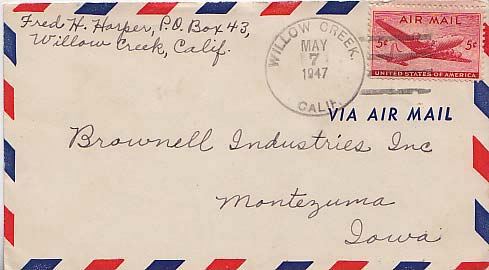 Fred H. Harper, P.O. Box 43,
Willow Creek, Calif.
WILLOW CREEK.
MAY
7
1947
CALIF.
AIR MAIL
5¢ 5¢
UNITED STATES OF AMERICA
VIA AIR MAIL
Brownell Industries Inc
Montezuma
Iowa